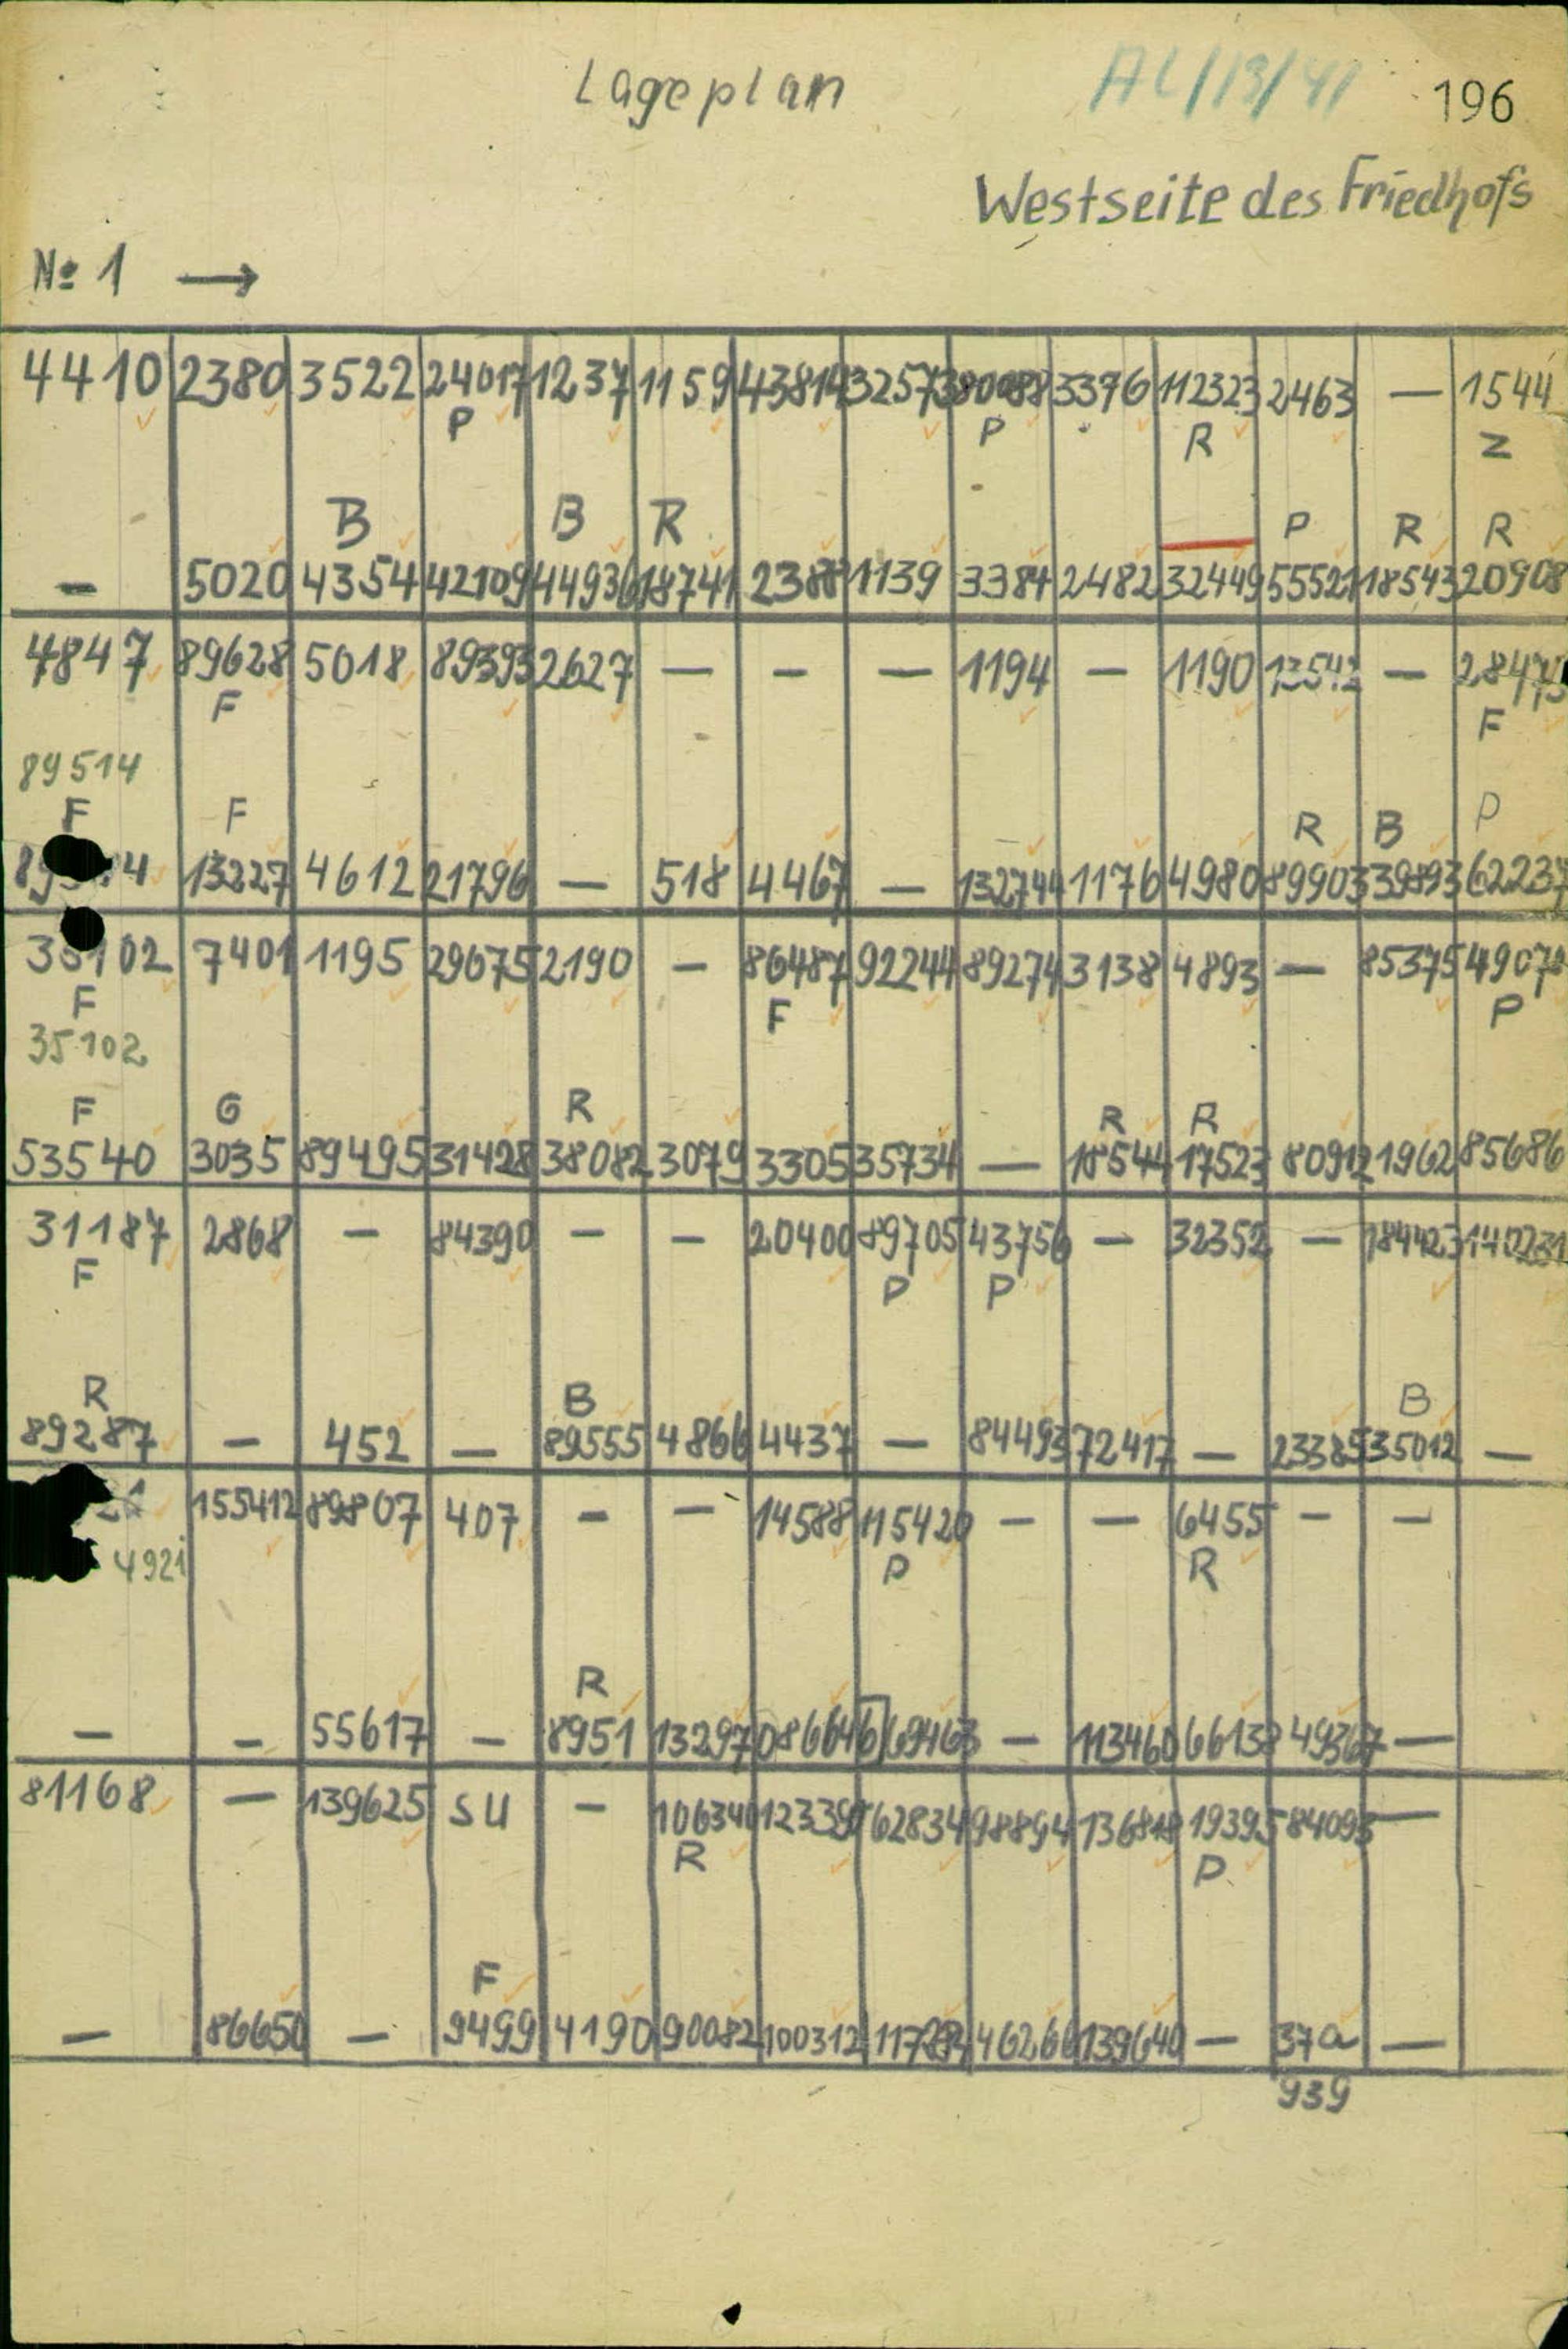 Lageplan AL/13/41 196
Westseite des Friedhofs
№ 1 →
4410 2380 3522 24017 1237 1159 43814 32573 80088 3376 112323 2463 — 1544
P P R Z
B B R P R R
— 5020 4354 42109 44936 18741 1139 3384 2482 32449 55521 18543 20908
4847 89628 5018 89393 2627 — — — 1194 — 1190 —
F F
89514
F F R B P
13227 4612 21796 — 518 4467 — 132744 1176 4980 89903 39893
7401 1195 29675 2190 — 86487 92244 89274 3138 4893 — 85375
F F P
35102
F G R R R
53540 3035 89495 31428 38082 3079 3305 35734 — 18544 17523 80912 1962 85686
31187 2868 — 84390 — — 20400 89705 43756 — 32352 —
F P P
R B B
89287 — 452 — 89555 4866 4437 — 84493 72417 — 23385 35012 —
155412 89807 407 — — 14588 115420 — — 6455 — —
4921 P R
R
— — 55617 — 8951 13297 086646 69463 — 113460 66138 49367 —
81168 — 139625 SU — 106340 62834 98894 136818 19395 84093 —
R P
F
— 86650 — 9499 4190 90082 100312 46266 139640 — 37a —
939